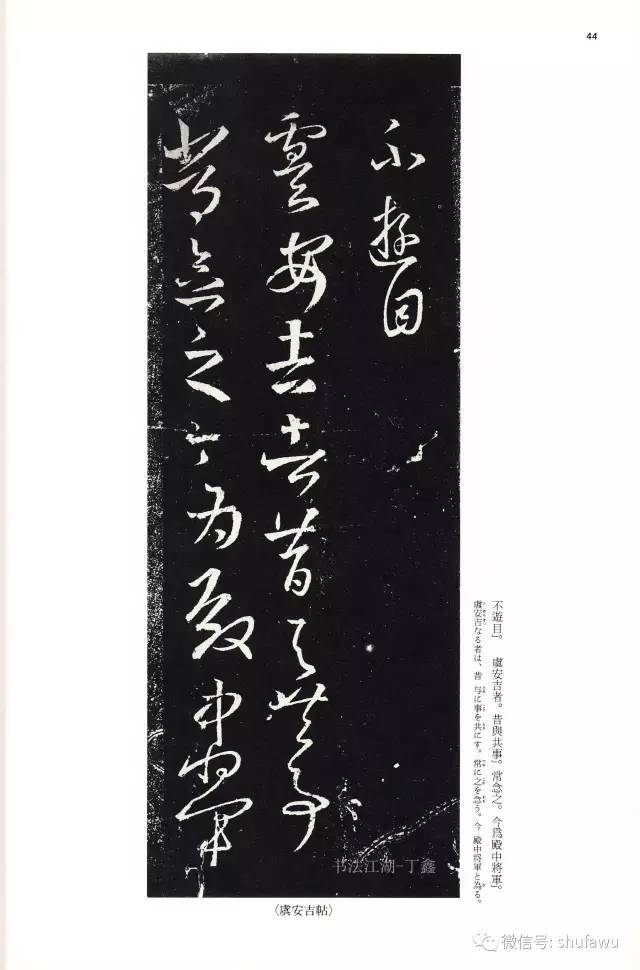 44
不遊目
虞安吉者昔與共事
常念之今為殿中將軍
不遊目』　虞安吉者。昔與共事』常念之。今爲殿中將軍』
虞安吉なる者は、昔 与に事を共にす。常に之を念う。今 殿中将軍と為る。
书法江湖-丁鑫
〈虞安吉帖〉
微信号: shufawu